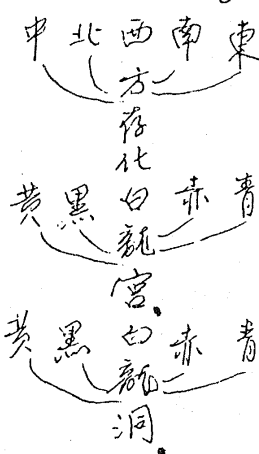 中北西南東
方
存
化
黄黑白赤青
龍
宫
黄黑白赤青
龍
洞